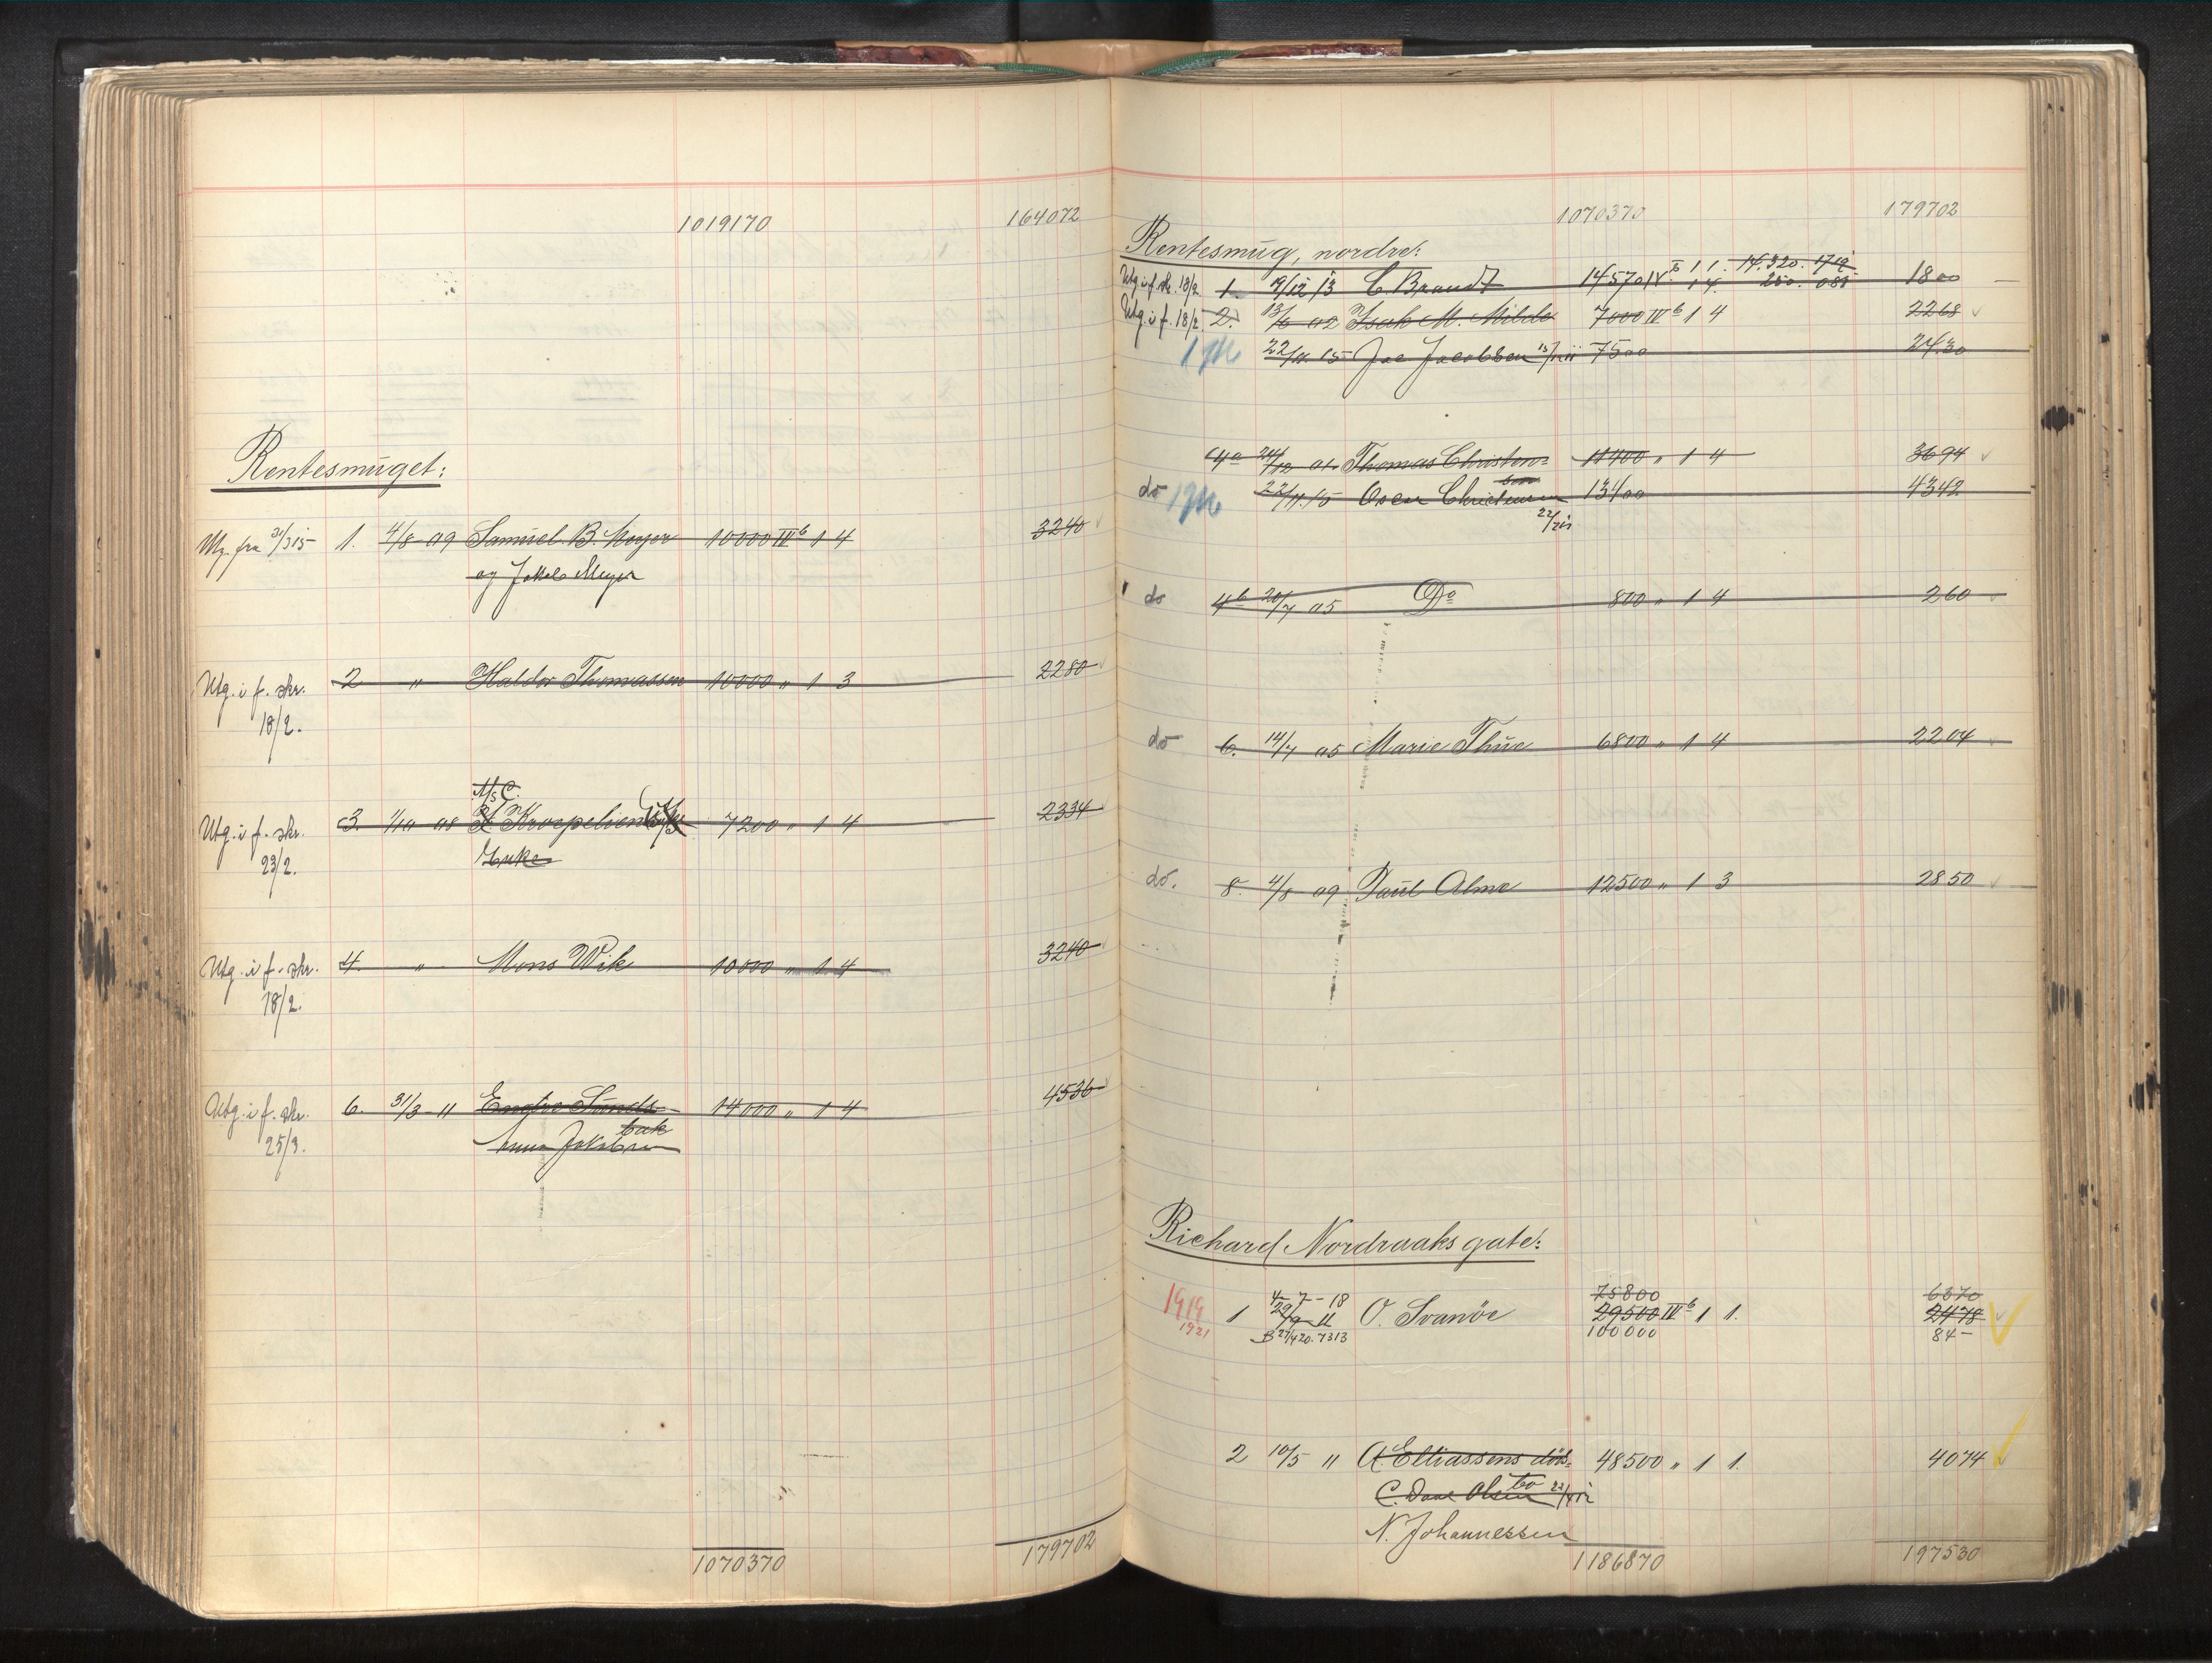 1019170 164072
Rentesmuget:
fra 31/3 15 1. 4/8 09 Samuel B. Meyer 10000 IV b 1 4 3240
og Jakob Meyer
Utg. i f. skr. 2 " Haldor Thomassen 10000 " 1 3 2280
18/2.
Utg. i f. skr. 3. 1/10 08 Kroepelien 7200 " 1 4 2334
23/2. Enke
Utg. i f. skr. 4. " Mons Wik 10000 " 1 4 3240
18/2.
Utg. i f. skr. 6. 31/3 11 Endre Sunds- 14000 " 1 4 4536
bak
25/3. Anna Jakobsen
1070370 179702
1070370 179702
Rentesmug, nordre:
Utg. i f. skr. 18/2 1. 9/12 13 C. Brandt 14570 IV b 1 1. 14.320. 1800
1 4. 250.
Utg. i f. 18/2. 2. 13/6 02 Isak M. Milde 7000 IV b 1 4 2268
22/11. 15 Jac Jacobsen 7500 2430
4a 24/12 01. Thomas Christen- 11400 " 1 4 3694
sen
do 22/11. 15 Oscar Christensen 13400 4342
do 4b 20/7 05 Do 800 " 1 4 260
do 6. 14/7 05 Marie Thue 6800 " 1 4 2204
do. 8. 4/8 09 Paul Alme 12500 " 1 3 2850
Richard Nordraaks gate:
4-7-18 75800 6370
1919 1 29/9 11 O. Svanöe 29500 IV b 1 1. 2478
1921 B 27/4 20. 7313 100000 84-
2 10/5 11 A. Elliassens döds- 48500 " 1 1. 4074
bo
C. Dane Olsen
N. Johannessen
1186870 197530